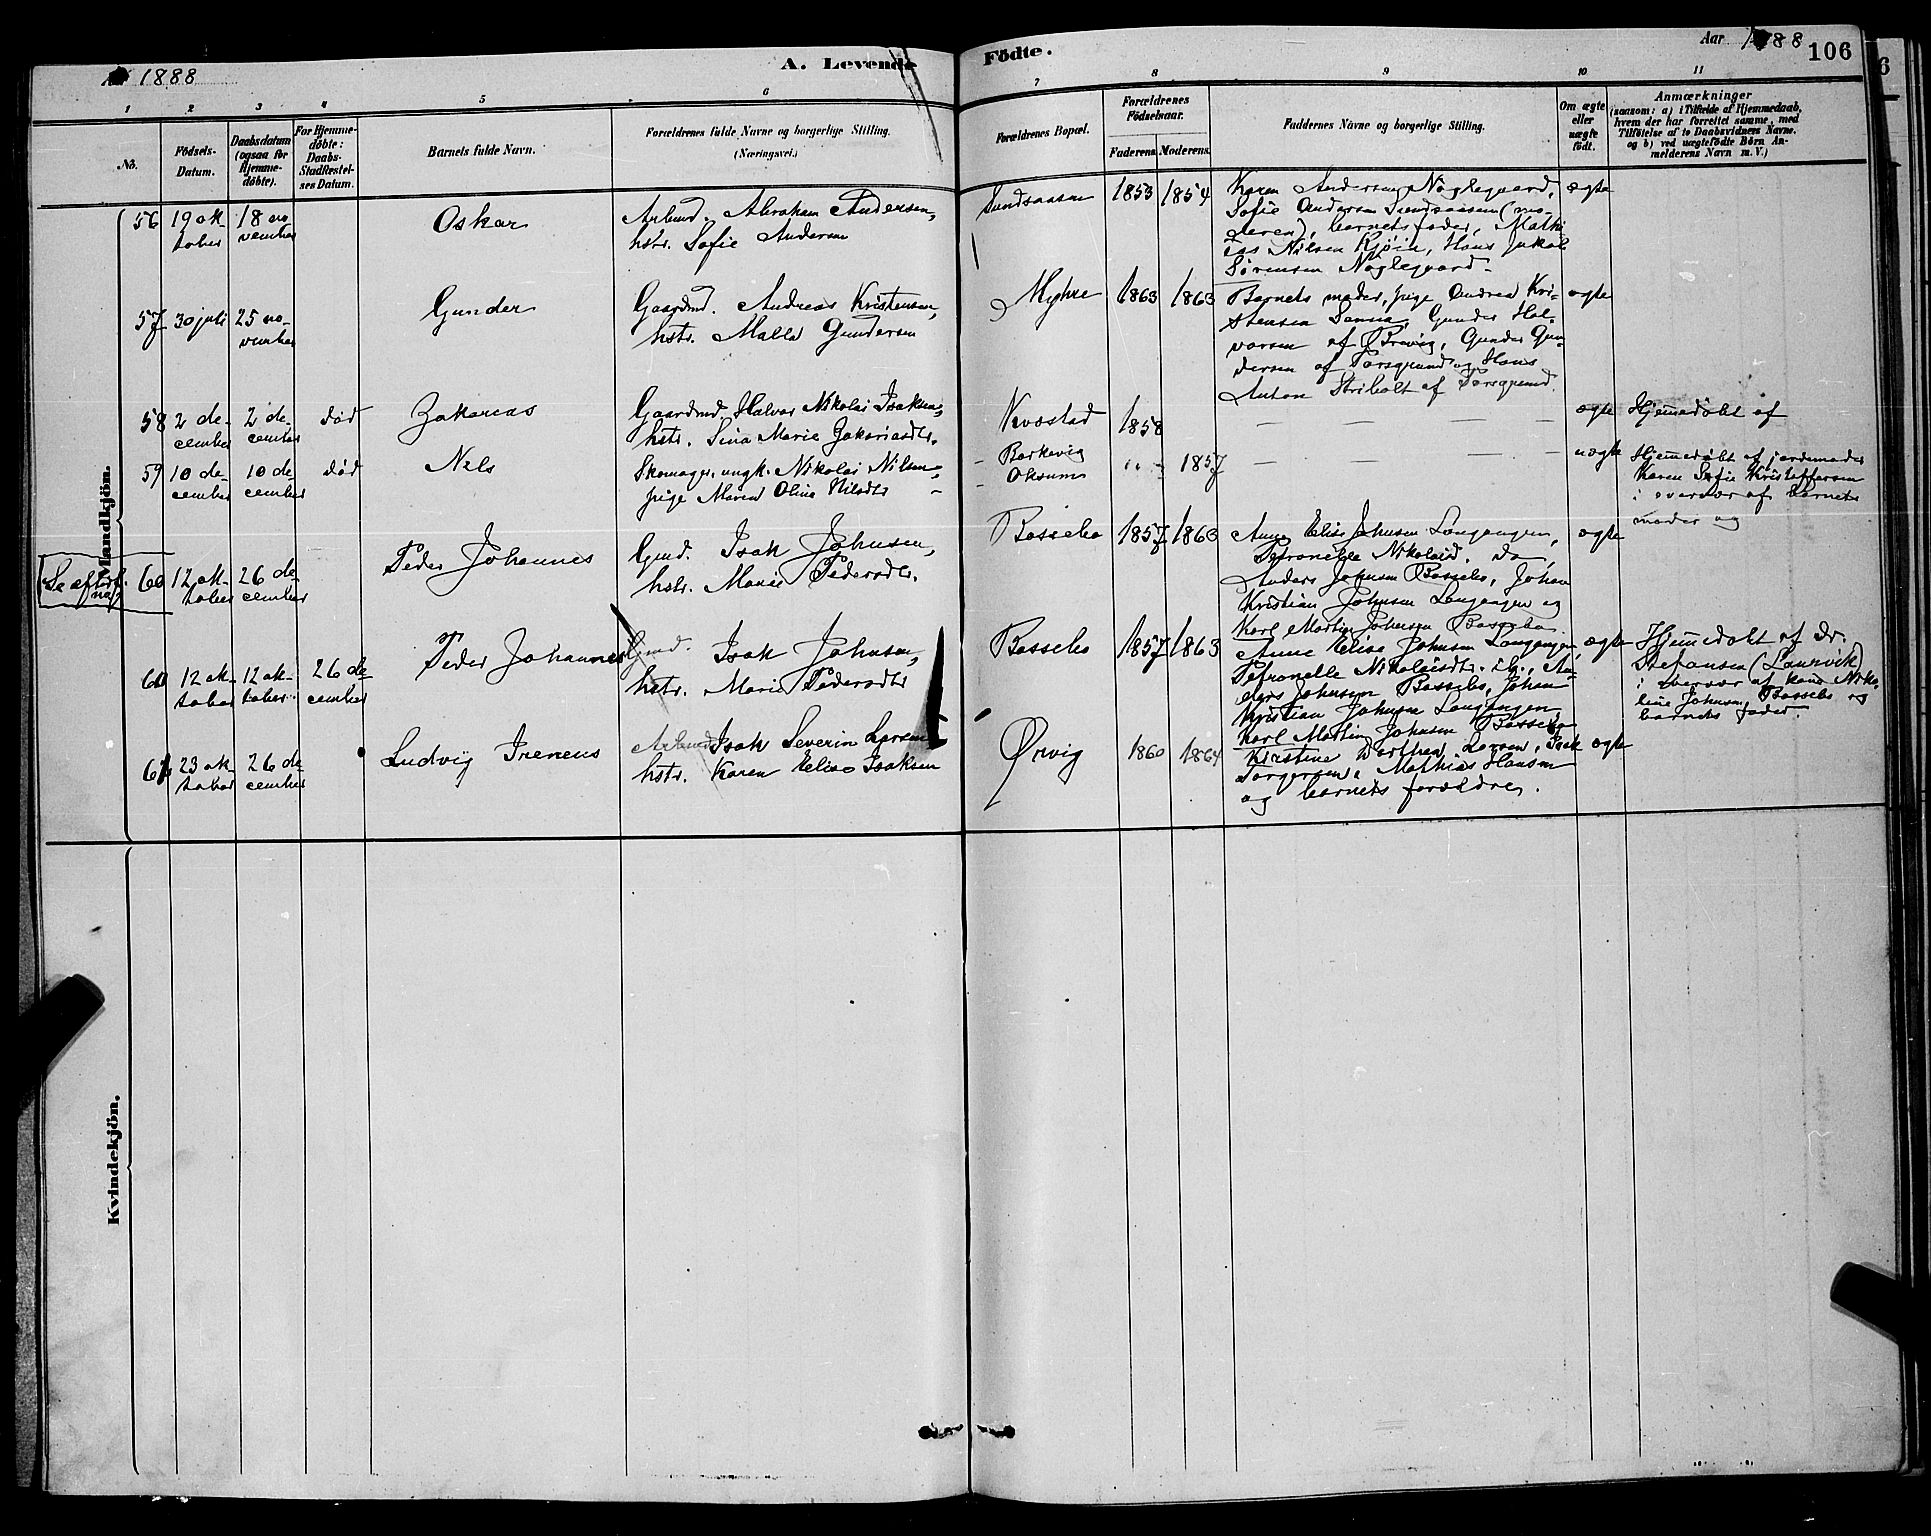 Aar 1888
A. Levende
Födte.
Aar 1888
106
1
2
3
4
5
6
7
8
9
10
11
No.
Födsels-
Datum.
Daabsdatum
(ogsaa for
Hjemme-
döbte).
For Hjemme-
döbte:
Daabs-
Stadfæstel-
ses Datum.
Barnets fulde Navn.
Forældrenes fulde Navne og borgerlige Stilling.
(Næringsvei.)
Forældrenes Bopæl.
Forældrenes
Födselsaar.
Faderens.
Moderens.
Faddernes Navne og borgerlige Stilling.
Om ægte
eller
uægte
født.
Anmærkninger
(saasom: a) i Tilfælde af Hjemmedaab,
hvem der har forrettet samme, med
Tilføielse af to Daabsvidners Navne.
og b) ved uægtefödte Börn An-
melderens Navn m. V.)
Mandkjön.
56
19 ok-
tober
18 no-
vember
Oskar
Arbmd. Abraham Andersen,
hstr. Sofie Andersen
Sundsaasen
1853
1854
Karen Andersen Naglegaard,
Sofie Andersen Sundsaasen (mo-
deren), barnets fader, Mathi-
as Nilsen Kjöin, Hans Jakob
Sørensen Naglegaard
ægte
57
30 juli
25 no-
vember
Gunder
Gaardmd. Andreas Kristensen,
hstr. Malla Gundersen
Myhre
1863
1863
Barnets moder, pige Andrea Kri-
stensen Sanna, Gunder Hal-
vorsen af Brevig, Gunder Gun-
dersen af Porsgrund og Hans
Anton Stribolt af Porsgrund.
ægte
58
2 de-
cember
2 de-
cember
død
Zakarias
Gaardmd. Halvor Nikolai Isaksen,
hstr. Sina Marie Zakariasdtr.
Kvæstad
1858
ægte
Hjemmedøbt af
59
10 de-
cember
10 de-
cember
død
Nils
Skomager, ungk. Nikolai Nilsen,
pige Maren Olina Nilsdtr
Barkevig
Oksum
1857
uægte
Hjemmedøbt af jordemoder
Karen Sofie Kristoffersen
i overvær af barnets
moder og
Se aftrf. nas
60
12 ok-
tober
26 de-
cember
Peder Johannes
Gmd. Isak Johnsen,
hstr. Marie Pedersdtr.
Bassebo
1857
1863
Anne Elise Johnsen Langangen,
Petronelle Nikolaisd. do,
Anders Johnsen Bassebo, Johan
Kristian Johnsen Langangen og
Karl Martin Johnsen Bassebo
ægte
60
12 ok-
tober
12 ok-
tober
26 de-
cember
Peder Johannes
Gmd. Isak Johnsen,
hstr. Marie Pedersdtr
Bassebo
1857
1863
Anne Elise Johnsen Langangen,
Petronelle Nikolaisdtr. Lg., An-
ders Johnsen Bassebo, Johan
Kristian Johnsen Langangen,
Karl Martin Johnsen Bassebo
ægte
Hjemmedøbt af Dr.
Stefansen (Laurvik)
i overvær af kone Niko-
line Johnsen, Bassebo og
barnets fader.
61
23 ok-
tober
26 de-
cember
Ludvig Ireneus
Arbmd. Isak Severin Larsen
hstr. Karen Elise Isaksen
Ørvig
1860
1864
Kirstine Dorthea Larsen, Isak
Torgersen, Mathias Hansen
og barnets forældre.
ægte
Kvindekjön.